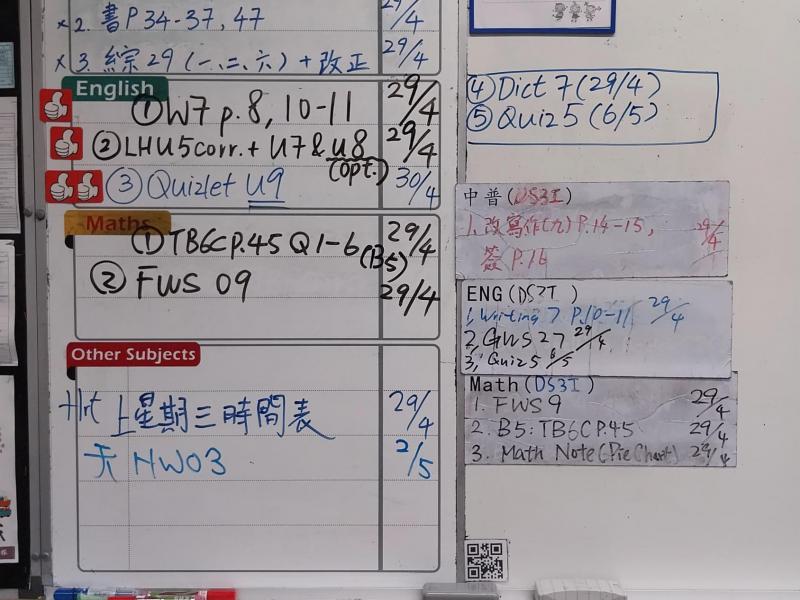 ×2. 書P34-37, 47 29/4
×3. 綜29(一、二、六)+改正 29/4
English
①W7 p.8, 10-11 29/4
②LHU5corr.+U7&U8 29/4
(opt.)
③Quizlet U9 30/4
Maths
①TB6CP.45 Q1-6 29/4
(B5)
②FWS 09 29/4
Other Subjects
Hrt 上星期三時間表 29/4
HW03 2/5
④Dict 7(29/4)
⑤Quiz5(6/5)
中普(DS3I)
1.改寫作(九)P.14-15, 29/4
簽P.16
ENG(DS3I)
1,Writing 7 P.10-11 29/4
2,GWS27 29/4
3,Quiz5 6/5
Math(DS3I)
1. FWS9 29/4
2. B5:TB6CP.45 29/4
3. Math Note(PieChart) 29/4